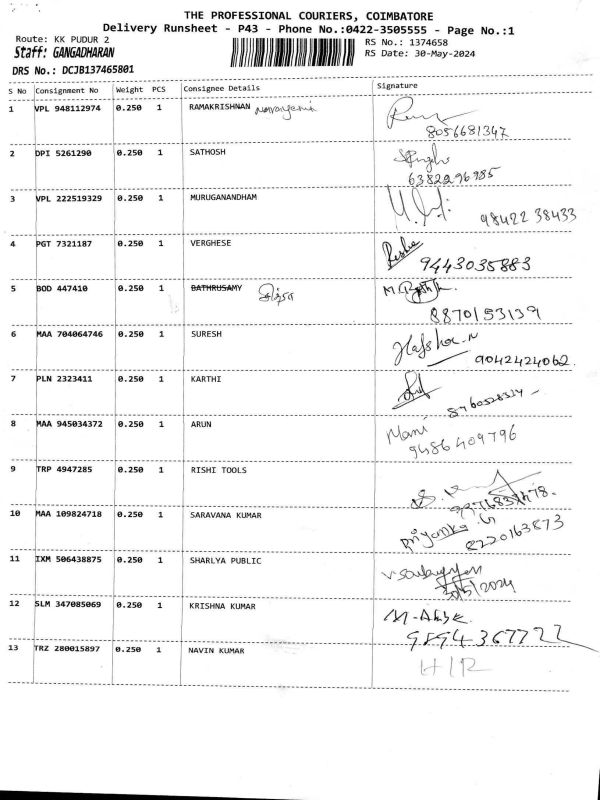 THE PROFESSIONAL COURIERS, COIMBATORE
Delivery Runsheet - P43 - Phone No.:0422-3505555 - Page No.:1
Route: KK PUDUR 2
RS No.: 1374658
Staff: GANGADHARAN
RS Date: 30-May-2024
DRS No.: DCJB137465801
S No Consignment No Weight PCS Consignee Details Signature
1 VPL 948112974 0.250 1 RAMAKRISHNAN
8056681347
2 DPI 5261290 0.250 1 SATHOSH
6382296985
3 VPL 222519329 0.250 1 MURUGANANDHAM
98422 38433
4 PGT 7321187 0.250 1 VERGHESE
9443035883
5 BOD 447410 0.250 1 BATHRUSAMY
8870153139
6 MAA 704064746 0.250 1 SURESH
9042424062
7 PLN 2323411 0.250 1 KARTHI
8 MAA 945034372 0.250 1 ARUN Mani
9486409796
9 TRP 4947285 0.250 1 RISHI TOOLS
10 MAA 109824718 0.250 1 SARAVANA KUMAR Priyanka G
8220163873
11 IXM 506438875 0.250 1 SHARLYA PUBLIC
30/5/2024
12 SLM 347085069 0.250 1 KRISHNA KUMAR
9894367722
13 TRZ 280015897 0.250 1 NAVIN KUMAR H/R